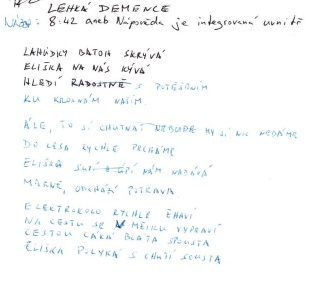 LEHKÁ DEMENCE
NÁZEV: 8:42 aneb Nápověda je integrovaná uvnitř
LAHŮDKY BATOH SKRÝVÁ
ELIŠKA NA NÁS KÝVÁ
HLEDÍ RADOSTNĚ S POTĚŠENÍM
KU KROSNÁM NAŠIM
ALE, TO SI CHUTNAT NEBUDE MY SI NIC NEDÁME
DO LESA RYCHLE PRCHÁME
ELIŠKA SUPÍ A ÚPÍ NÁM NADÁVÁ
MARNĚ, ODCHÁZÍ POTRAVA
ELEKTROKOLO RYCHLE
NA CESTU SE VYPRAVÍ
CESTOU CÁKÁ BLÁTA SPOUSTA
ELIŠKA POLYKÁ S CHUTÍ SOUSTA